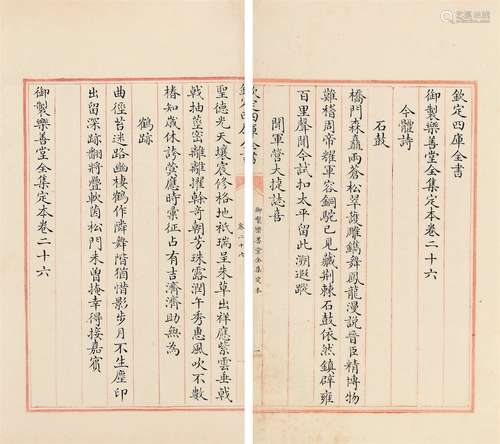 欽定四庫全書
御製樂善堂全集定本卷二十六
今體詩
石鼓
橋門森矗兩蒼松翠雕鐫舞鳳龍漫說晉臣精博物
難稽周帝耀軍容銅駝已見藏荆棘石鼓依然鎮辟雍
百里聲聞今試扣太平留此溯遐蹤
聞軍營大捷誌喜
御製樂善堂全集定本
一
欽定四庫全書
卷二十六
聖德光天壤宸修格地祇瑞呈朱草出祥應紫雲垂戟
戟抽莖密離離擢幹奇朝芳珠露潤午秀惠風吹不數
椿知歲休誇蓂應時彙征占有吉濟濟助無為
鶴跡
曲徑苔迷路幽棲鶴作隣舞階猶惜影步月不生塵印
出留深跡翻將疊軟茵松門未曾掩幸得接嘉賓
御製樂善堂全集定本卷二十六